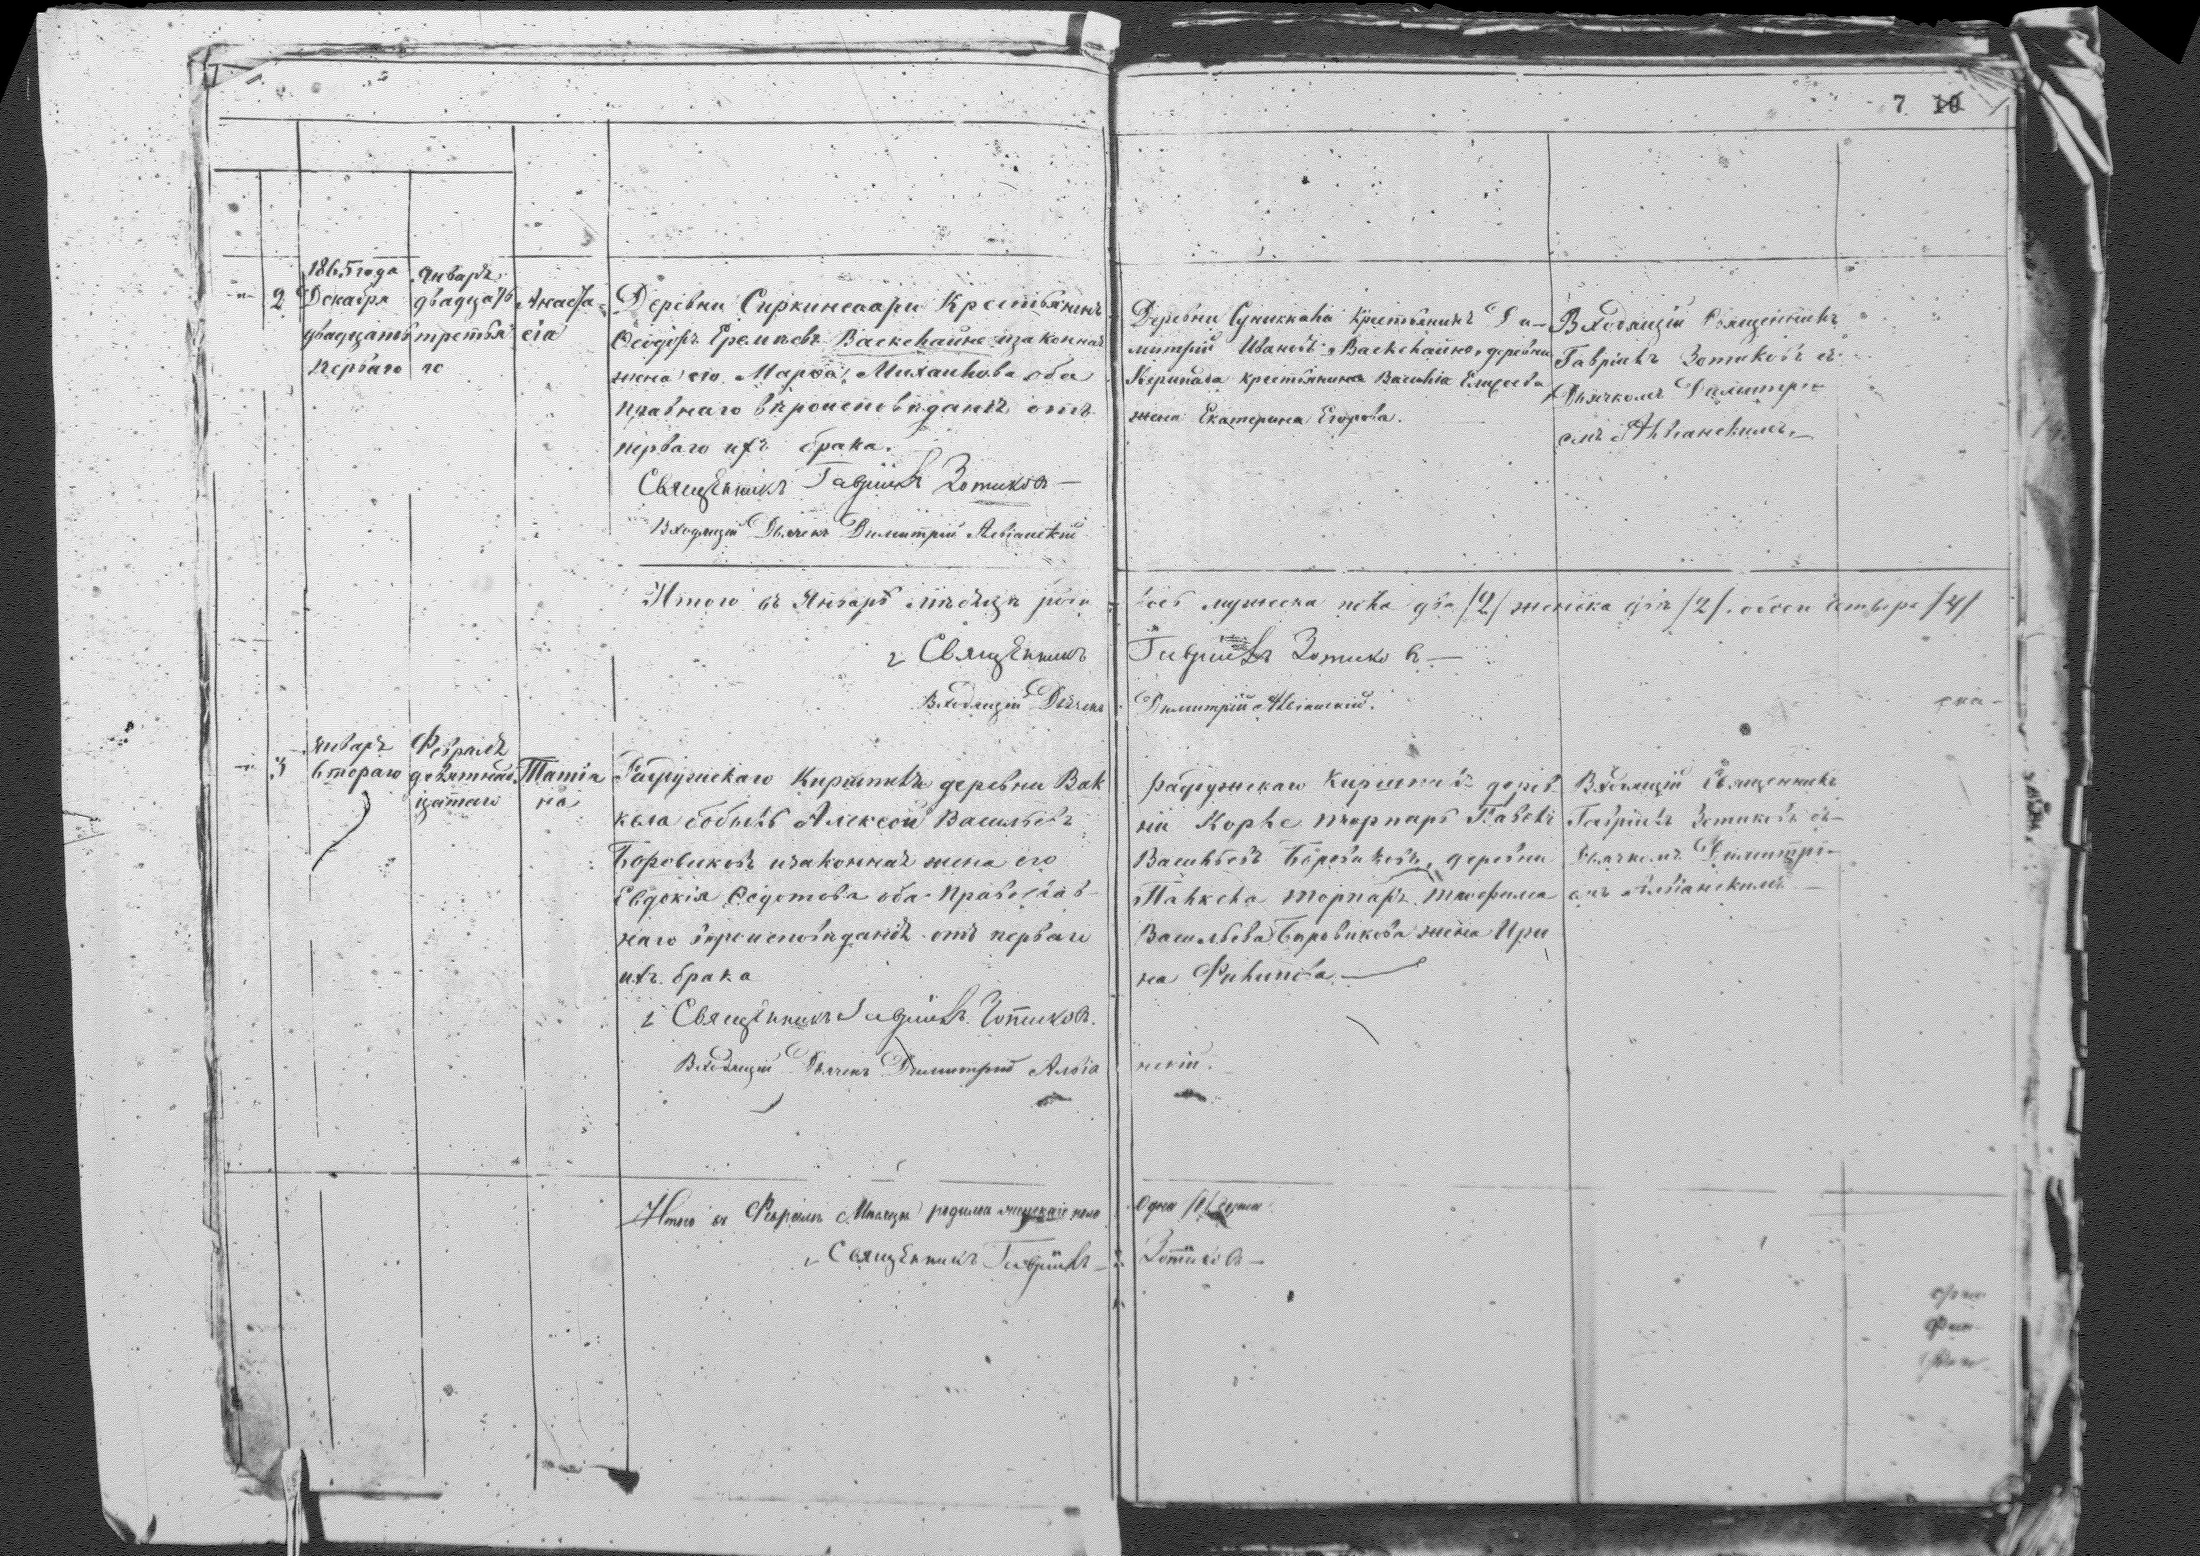 7 10
1865 года Январь
2 Декабря двадцать Анаста-
двадцать третья сія
перваго го
Деревни Сиркинсаари Крестьянинъ
Ѳеодоръ Еремѣевъ Васкелайне и законная
жена его Марѳа Михаилова оба
православнаго вѣроисповѣданія отъ
перваго ихъ брака.
Священникъ Гавріилъ Зотиковъ
Входящій Дьячекъ Димитрій Албіанскій
Деревни крестьянинъ Ди-
митрій Ивановъ Васкелайне, деревни
крестьянина Василія Елисеева
жена Екатерина Егорова.
Входящій Священникъ
Гавріилъ Зотиковъ съ
Дьячкомъ Димитрі-
емъ Албіанскимъ
Итого въ Январѣ мѣсяцѣ роди лось мужеска пола два /2/ женска двѣ /2/. обоего четыре /4/
Священникъ Гавріилъ Зотиковъ
Входящій Дьячекъ Димитрій Албіанскій.
Январь Февраль
3 втораго девятнад Татіа
цатаго на
Кирпичн деревни Вак
кела бобыль Алексей Васильевъ
Боровиковъ и законная жена его
Евдокія Ѳедотова оба православ-
наго вѣроисповѣданія отъ перваго
ихъ брака
Священникъ Гавріилъ Зотиковъ.
Входящій Дьячекъ Димитрій Албіа нскій.
дерев
ни Корле торпарь Павелъ
Васильевъ Боровиковъ, деревни
торпаря Тимофея
Васильева Боровикова жена Ири
на Филипова
Входящій Священникъ
Гавріилъ Зотиковъ съ
Дьячкомъ Димитрі-
емъ Албіанскимъ
Итого въ Февралѣ Мѣсяцѣ родилось женскаго пола одна /1/
Священникъ Гавріилъ Зотиковъ